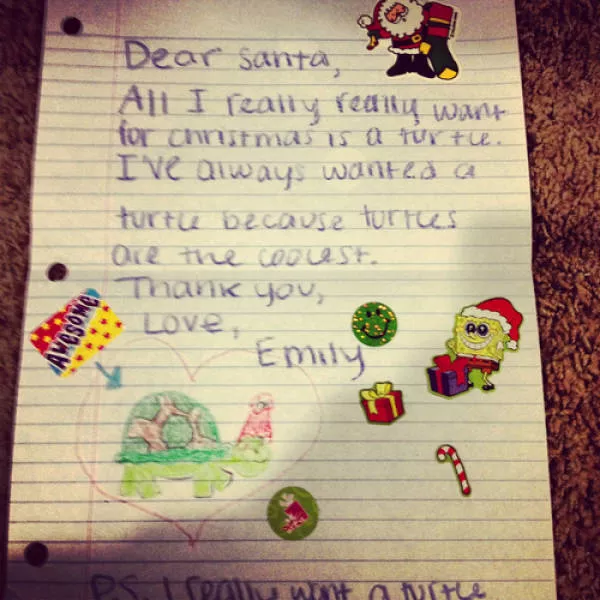 Dear Santa,
All I really really want
for christmas is a turtle.
I've always wanted a
turtle because turtles
are the coolest.
Thank you,
Love,
Emily
Awesome
PS. I really want a turtle